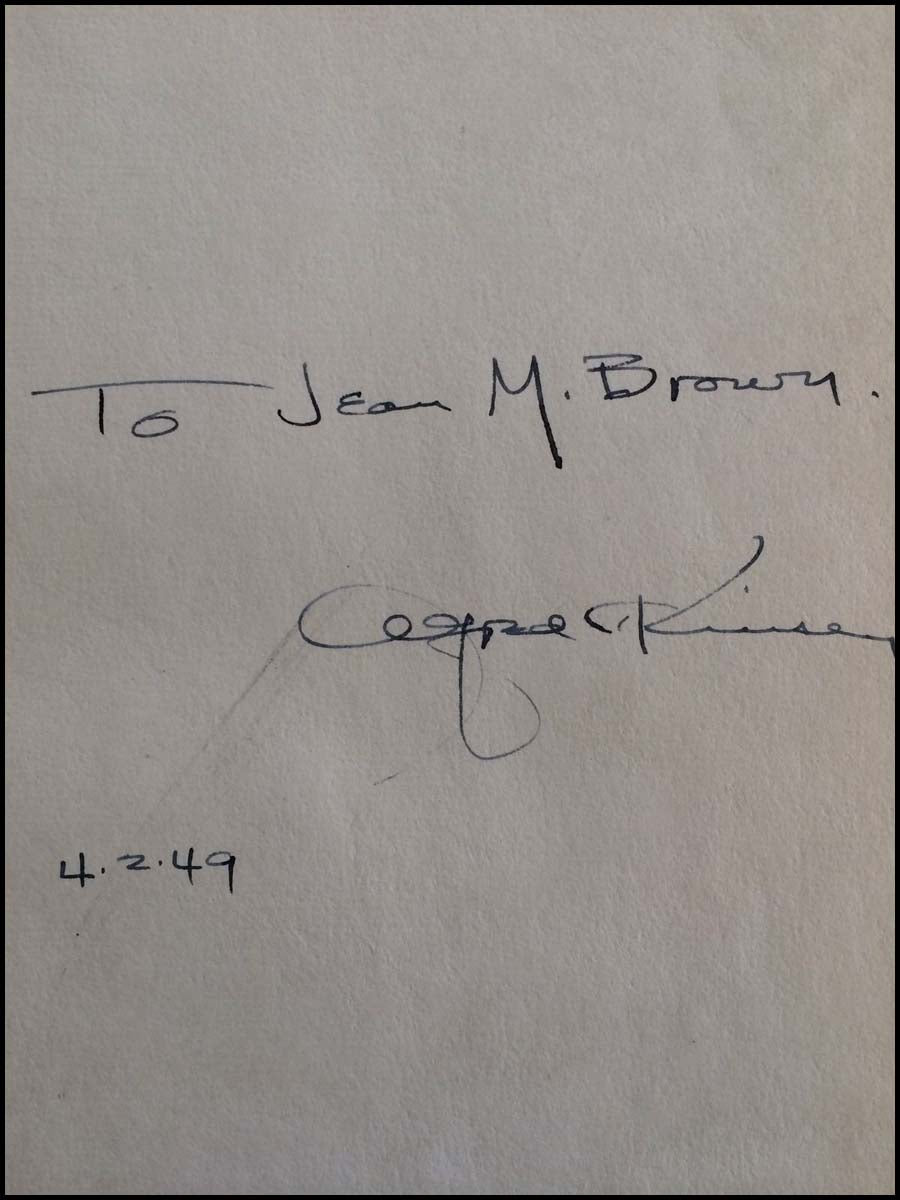 To Jean M. Brown.
Alfred C. Kinsey
4.2.49